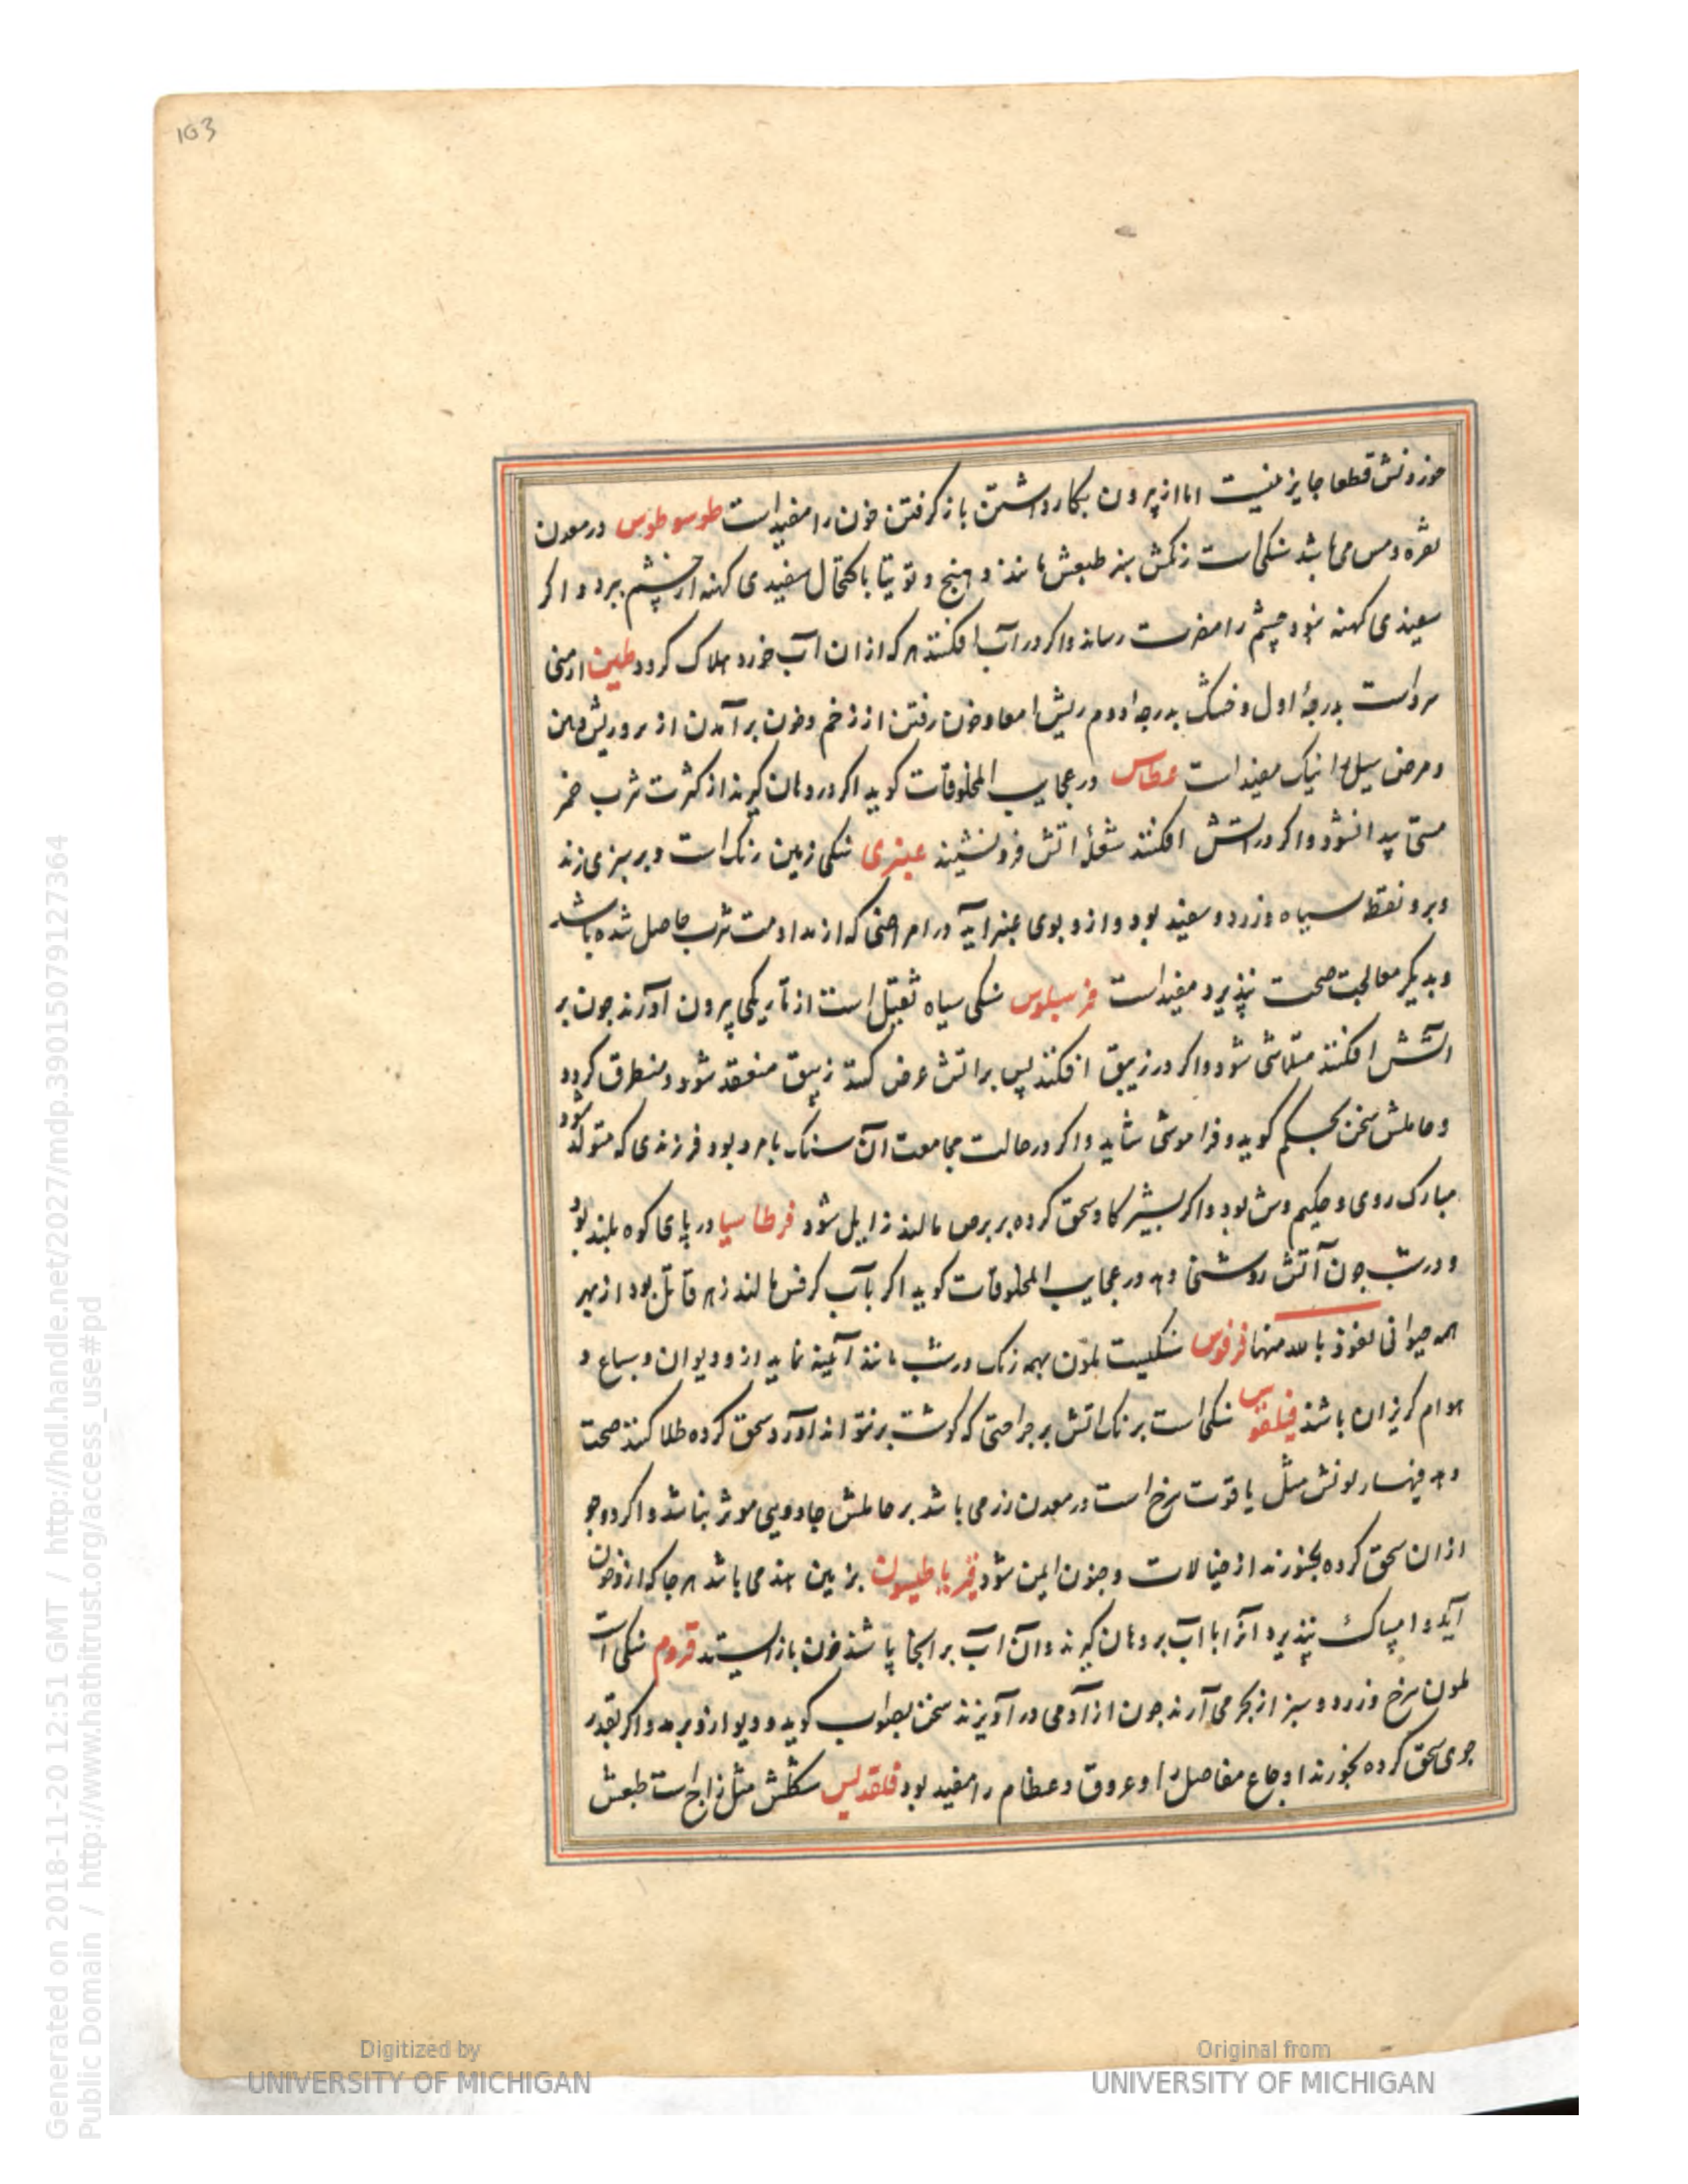 103
خوردنش قطعا جایز نیست اما از بیرون بکار داشتن باز گرفتن خون را مفید است طوسوطوس در معدن
نقره و مس می باشد سنکی است رنکش سبز طبعش مانند دهنج و توتیا با کتحال سفیدی کهنه از چشم ببرد و اکر
سفیدی کهنه نبود چشم را مضرت رساند و اکر در آب افکنند هر که از ان آب خورد هلاک کردد طین ارمنی
سرد است بدرجهٔ اول و خشک بدرجه دوم ریش امعا و خون رفتن از زخم و خون بر آمدن از سر و ریش دهن
و مرض سل را نیک مفید است عطاس در عجایب المخلوقات کوید اکر در دهان کیرند از کثرت شرب خمر
مستی پیدا نشود و اکر در اتش افکنند شعلهٔ اتش فرو نشیند عنبری سنکی زمین رنک است و بر سبزی زند
و برو نقطه سیاه و زرد و سفید بود و ازو بوی عنبر اید در امراضی که از مداومت شرب حاصل شده باشد
و بدیکر معالجت صحت نپذیرد مفید است فرسلوس سنکی سیاه ثقیل است از تاریکی بیرون آورند جون بر
اتش افکنند متلاشی شود و اکر در زیبق افکنند پس بر اتش عرض کنند زیبق منعقد شود و منطرق کردد
و حاملش سخن بحکم کوید و فراموشی نباید و اکر در حالت مجامعت آن سنک با مرد بود فرزندی که متولد شود
مبارک روی و حکیم وش بود و اکر بشیر کاو سحق کرده بر برص مالند زایل شود فرطاسیا در پای کوه بلند بود
و در شب جون آتش روشنی دهد در عجایب المخلوقات کوید اکر بآب کرفس مالند زهر قاتل بود از بهر
همه حیوانی نعوذ بالله منها فرفوس سنکیست بلون همه رنک در شب مانند آیینه نماید ازو دیوان و سباع و
هوام کریزان باشند فیلقوس سنکی است برنک اتش بر جراحتی که کوشت بر نتواند آورد سحق کرده طلا کنند صحت
دهد فیهسار لونش مثل یاقوت سرخ است در معدن زر می باشد بر حاملش جادویی موثر نباشد و اکر دو جو
از ان سحق کرده بخورند از خیالات و جنون ایمن شود بزمین هند می باشد هر جا که ازو خون
آید و امساک نپذیرد آنرا با آب بر دهان کیرند و آن اب بر انجا پاشند خون باز ایستد قروم سنکی است
بلون سرخ و زرد و سبز از بحر می آرند جون از آدمی در آویزند سخن بصواب کوید و دیو ازو برمد و اکر بقدر
جوی سحق کرده بخورند اوجاع مفاصل را و عروق و عظام را مفید بود قلقدیس سکلش مثل زاج است طبعش
Generated on 2018-11-20 12:51 GMT / http://hdl.handle.net/2027/mdp.39015079127364
Public Domain / http://www.hathitrust.org/access_use#pd
Digitized by
UNIVERSITY OF MICHIGAN
Original from
UNIVERSITY OF MICHIGAN